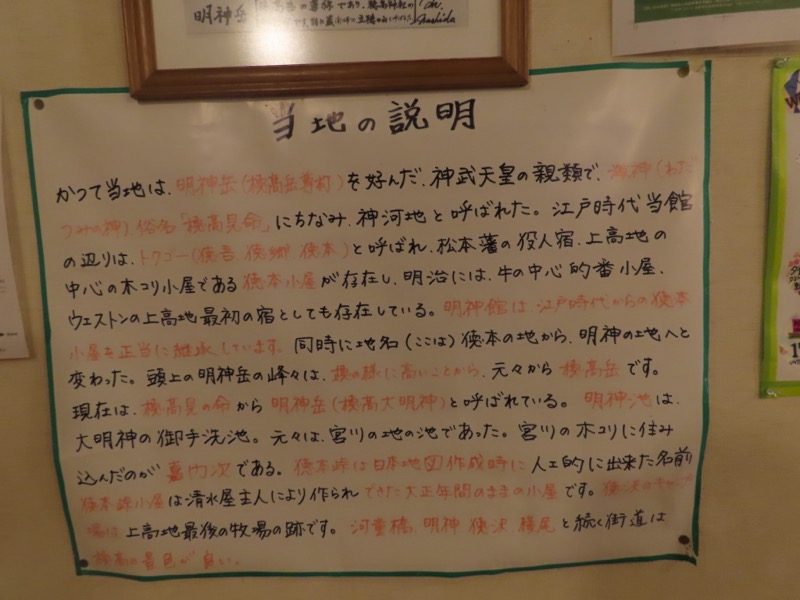 明神岳
当地の説明
かつて当地は、明神岳(穂高岳専称)を好んだ、神武天皇の親類で、海神(わた
つみの神)俗名「穂高見命」にちなみ、神河地と呼ばれた。江戸時代当館
の辺りは、トクゴー(徳吾 徳郷 徳本)と呼ばれ、松本藩の役人宿、上高地の
中心の木コリ小屋である徳本小屋が存在し、明治には、牛の中心的番小屋、
ウェストンの上高地最初の宿としても存在している。明神館は、江戸時代からの徳本
小屋を正当に継承しています。同時に地名(ここは)徳本の地から、明神の地へと
変わった。頭上の明神岳の峰々は、穂の様に高いことから、元々から穂高岳です。
現在は、穂高見の命から明神岳(穂高大明神)と呼ばれている。明神池は、
大明神の御手洗池。元々は、宮川の地の池であった。宮川の木コリに住み
込んだのが嘉門次である。徳本峠は日本地図作成時に人工的に出来た名前
徳本峠小屋は清水屋主人により作られできた大正年間のままの小屋です。徳沢のキャンプ
場は上高地最後の牧場の跡です。河童橋、明神、徳沢、横尾と続く街道は
穂高の景色が良い。